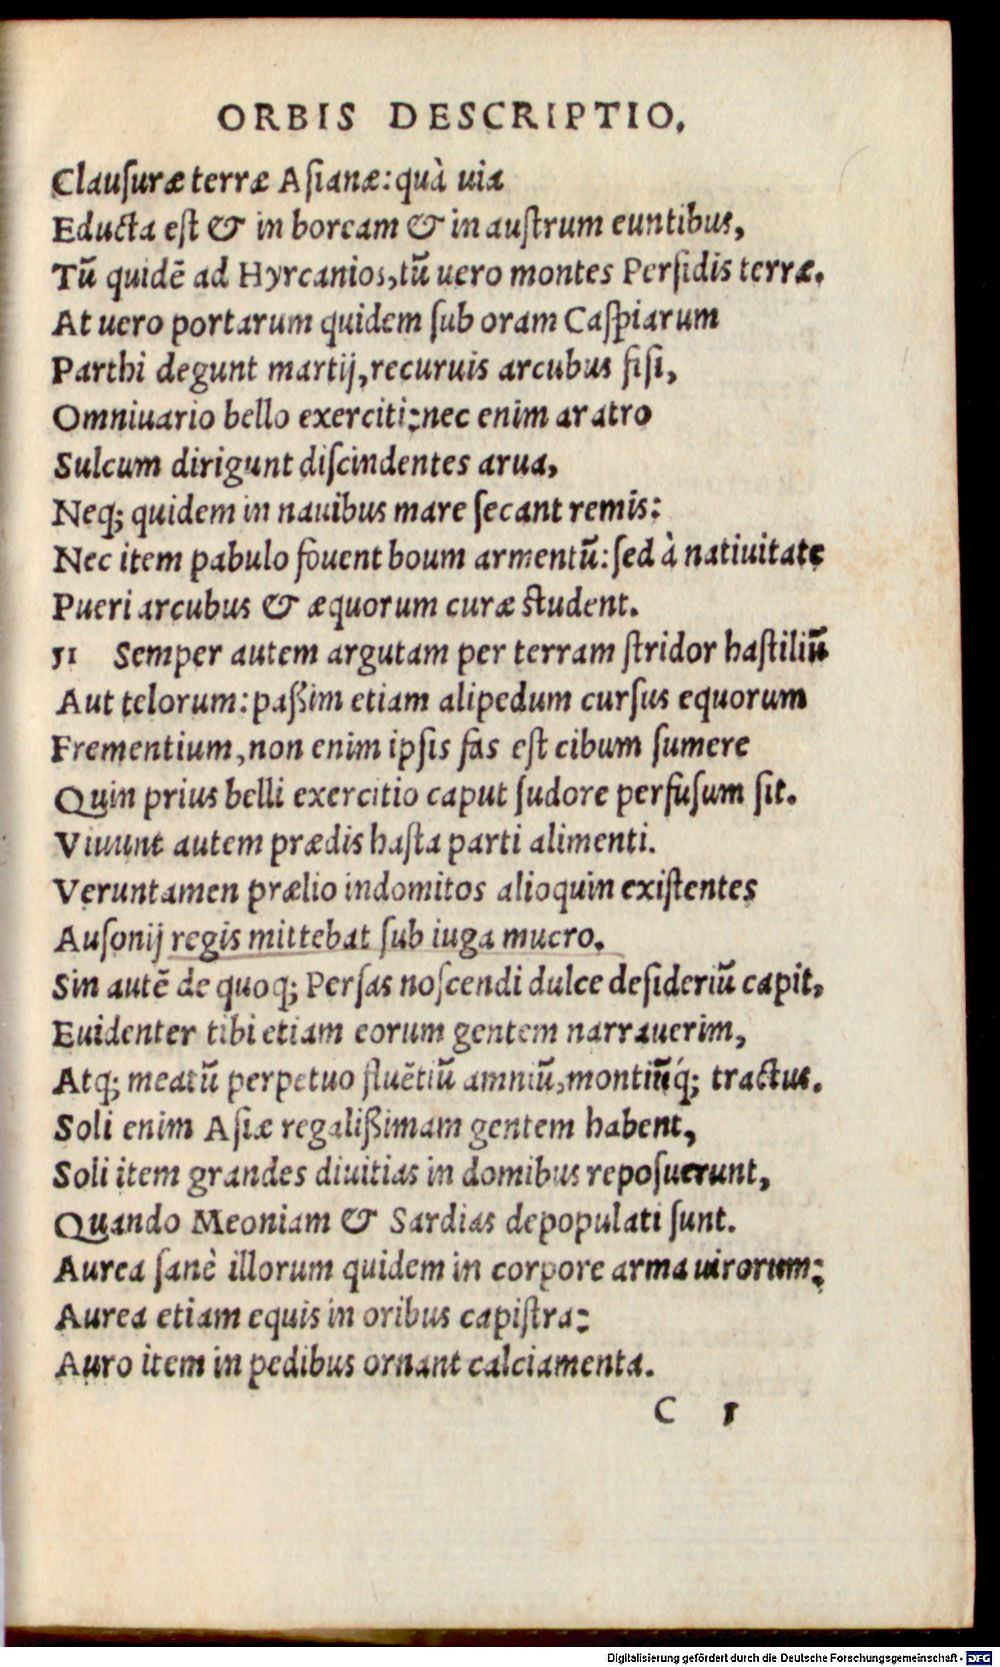 ORBIS DESCRIPTIO.
Clauſuræ terræ Aſianæ: quà uia
Educta eſt & in boream & in auſtrum euntibus,
Tũ quidẽ ad Hyrcanios, tũ uero montes Perſidis terræ.
At uero portarum quidem ſub oram Caſpiarum
Parthi degunt martij, recuruis arcubus fiſi,
Omniuario bello exerciti: nec enim aratro
Sulcum dirigunt diſcindentes arua,
Neq; quidem in nauibus mare ſecant remis:
Nec item pabulo fouent boum armentũ: ſed à natiuitate
Pueri arcubus & æquorum curæ ſtudent.
51 Semper autem argutam per terram ſtridor haſtiliũ
Aut telorum: paßim etiam alipedum curſus equorum
Frementium, non enim ipſis fas eſt cibum ſumere
Quin prius belli exercitio caput ſudore perfuſum ſit.
Viuunt autem prædis haſta parti alimenti.
Veruntamen prælio indomitos alioquin exiſtentes
Auſonij regis mittebat ſub iuga mucro.
Sin autẽ de quoq; Perſas noſcendi dulce deſideriũ capit,
Euidenter tibi etiam eorum gentem narrauerim,
Atq; meatũ perpetuo fluẽtiũ amniũ, montiũq́; tractus.
Soli enim Aſiæ regalißimam gentem habent,
Soli item grandes diuitias in domibus repoſuerunt,
Quando Meoniam & Sardias depopulati ſunt.
Aurea ſanè illorum quidem in corpore arma uirorum:
Aurea etiam equis in oribus capiſtra:
Auro item in pedibus ornant calciamenta.
C 1
Digitalisierung gefördert durch die Deutsche Forschungsgemeinschaft - DFG